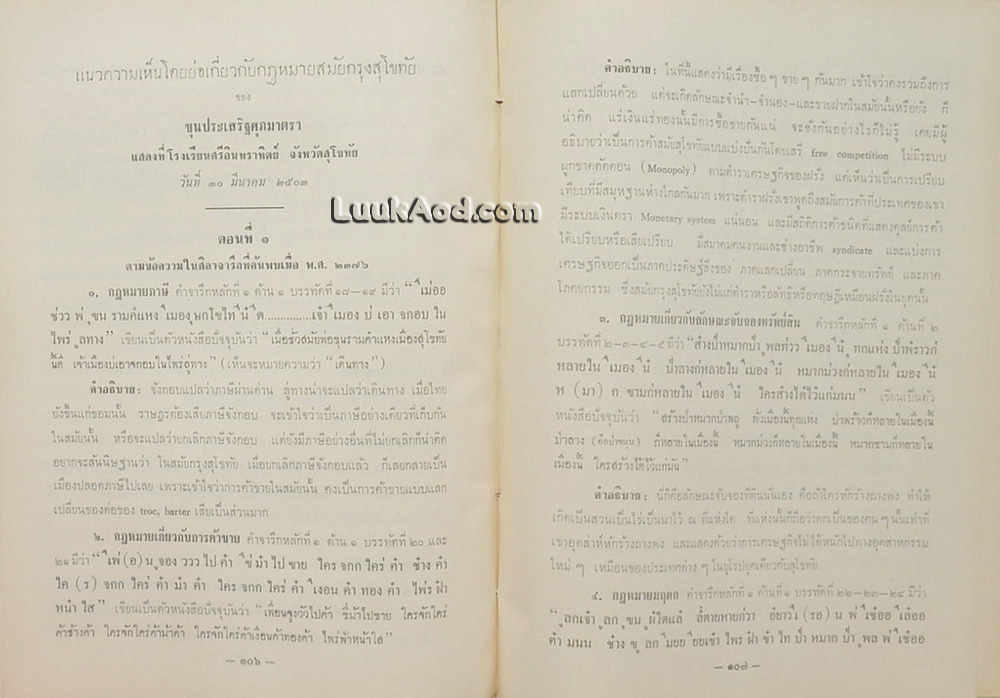 แนวความเห็นโดยย่อเกี่ยวกับกฎหมายสมัยกรุงสุโขทัย
ของ
ขุนประเสริฐศุภมาตรา
แสดงที่โรงเรียนศรีอินทราทิตย์ จังหวัดสุโขทัย
วันที่ ๓๐ มีนาคม ๒๕๐๓
LuukAod.com
ตอนที่ ๑
ตามข้อความในศิลาจารึกที่ค้นพบเมื่อ พ.ศ. ๒๓๗๖
๑. กฎหมายภาษี คำจารึกหลักที่ ๑ ด้าน ๑ บรรทัดที่ ๑๘–๑๙ มีว่า
ช่วว พํ่ขุน รามคํแหง
ไพร่ ลูทาง” เขียนเป็นตัวหนังสือปัจจุบันว่า “เมื่อชั่วสมัยพ่อขุนรามคำแหงเมืองสุโขทัย
นี้ดี เจ้าเมืองบ่เอาจกอบในไพร่ลู่ทาง” (เห็นจะหมายความว่า “เดินทาง”)
คำอธิบาย: จังกอบแปลว่าภาษีผ่านด่าน ลู่ทางน่าจะแปลว่าเดินทาง เมื่อไทย
ยังขึ้นแก่ขอมนั้น ราษฎรต้องเสียภาษีจังกอบ จะเข้าใจว่าเป็นภาษีอย่างเดียวที่เก็บกัน
ในสมัยนั้น หรือจะแปลว่ายกเลิกภาษีจังกอบ แต่ยังมีภาษีอย่างอื่นที่ไม่ยกเลิกก็น่าคิด
อยากจะสันนิษฐานว่า ในสมัยกรุงสุโขทัย เมื่อยกเลิกภาษีจังกอบแล้ว ก็เลยกลายเป็น
เมืองปลอดภาษีไปเลย เพราะเข้าใจว่าการค้าขายในสมัยนั้น คงเป็นการค้าขายแบบแลก
เปลี่ยนของต่อของ troc, barter เสียเป็นส่วนมาก
๒. กฎหมายเกี่ยวกับการค้าขาย คำจารึกหลักที่ ๑ ด้าน ๑ บรรทัดที่ ๒๐ และ
๒๑ มีว่า
หนํา ใส” เขียนเป็นตัวหนังสือปัจจุบันว่า “เพื่อนจูงวัวไปค้า ขี่ม้าไปขาย ใครจักใคร่
ค้าช้างค้า ใครจักใคร่ค้าม้าค้า ใครจักใคร่ค้าเงือนค้าทองค้า ไพร่ฟ้าหน้าใส”
— ๑๐๖ —
คำอธิบาย: ในที่นี้แสดงว่ามีเรื่องซื้อ ๆ ขาย ๆ กันมาก เข้าใจว่าคงรวมถึงการ
แลกเปลี่ยนด้วย แต่จะเกิดลักษณะจำนำ–จำนอง–และขายฝากในสมัยนั้นหรือยัง ก็
น่าคิด แร่เงินแร่ทองนั้นมีการซื้อขายกันแน่ จะชั่งกันอย่างไรก็ไม่รู้ เคยมีผู้
อธิบายว่าเป็นการค้าสมัยสุโขทัยแบบแบ่งปันกันโดยเสรี free competition ไม่มีระบบ
ผูกขาดตัดตอน (Monopoly) ตามตำราเศรษฐกิจของฝรั่ง แต่เห็นว่าเป็นการเปรียบ
เทียบที่มีสมุหฐานห่างไกลกันมาก เพราะตำราฝรั่งเขาพูดถึงสมัยการค้าที่ประเทศของเขา
มีระบบเงินตรา Monetary system แน่นอน และมีสถิติการค้าชนิดที่แสดงดุลย์การค้า
ได้เปรียบหรือเสียเปรียบ มีสมาคมคนงานและช่างอาชีพ syndicate และแบ่งการ
เศรษฐกิจออกเป็นภาคประดิษฐ์สิ่งของ ภาคแลกเปลี่ยน ภาคกระจายทรัพย์ และภาค
โภคยกรรม ซึ่งสมัยกรุงสุโขทัยยังไม่แก่ตำราหรือลัทธิหรือทฤษฎีเหมือนฝรั่งในยุคนั้น
๓. กฎหมายเกี่ยวกับลักษณะจับจองทรัพย์สิน คำจารึกหลักที่ ๑ ด้านที่ ๒
บรรทัดที่ ๒–๓–๔–๕ มีว่า
เขียนเป็นตัว
หนังสือปัจจุบันว่า “สร้างป่าหมากป่าพลู ทั่วเมืองนี้ทุกแห่ง ป่าพร้าวก็หลายในเมืองนี้
ป่าลาง (คือป่าขนุน) ก็หลายในเมืองนี้ หมากม่วงก็หลายในเมืองนี้ หมากขามก็หลายใน
เมืองนี้ ใครสร้างได้ไว้แก่มัน”
คำอธิบาย: นี่ก็คือลักษณะจับจองที่ดินนั่นเอง คือถ้าใครหักร้างถางพง ทำให้
เกิดเป็นสวนเป็นไร่เป็นนาไว้ ณ ที่แห่งใด ที่แห่งนั้นก็ถือว่าตกเป็นของคน ๆ นั้นเท่าที่
เขาอุตส่าห์หักร้างถางพง และแสดงด้วยว่าการเศรษฐกิจไม่ได้หนักไปทางอุตสาหกรรม
ใหม่ ๆ เหมือนของประเทศต่าง ๆ ในยุโรปยุคเดียวกับสุโขทัย
๔. กฎหมายมฤดก คำจารึกหลักที่ ๑ ด้านที่ ๑ บรรทัดที่ ๒๒–๒๓–๒๔ มีว่า
— ๑๐๗ —